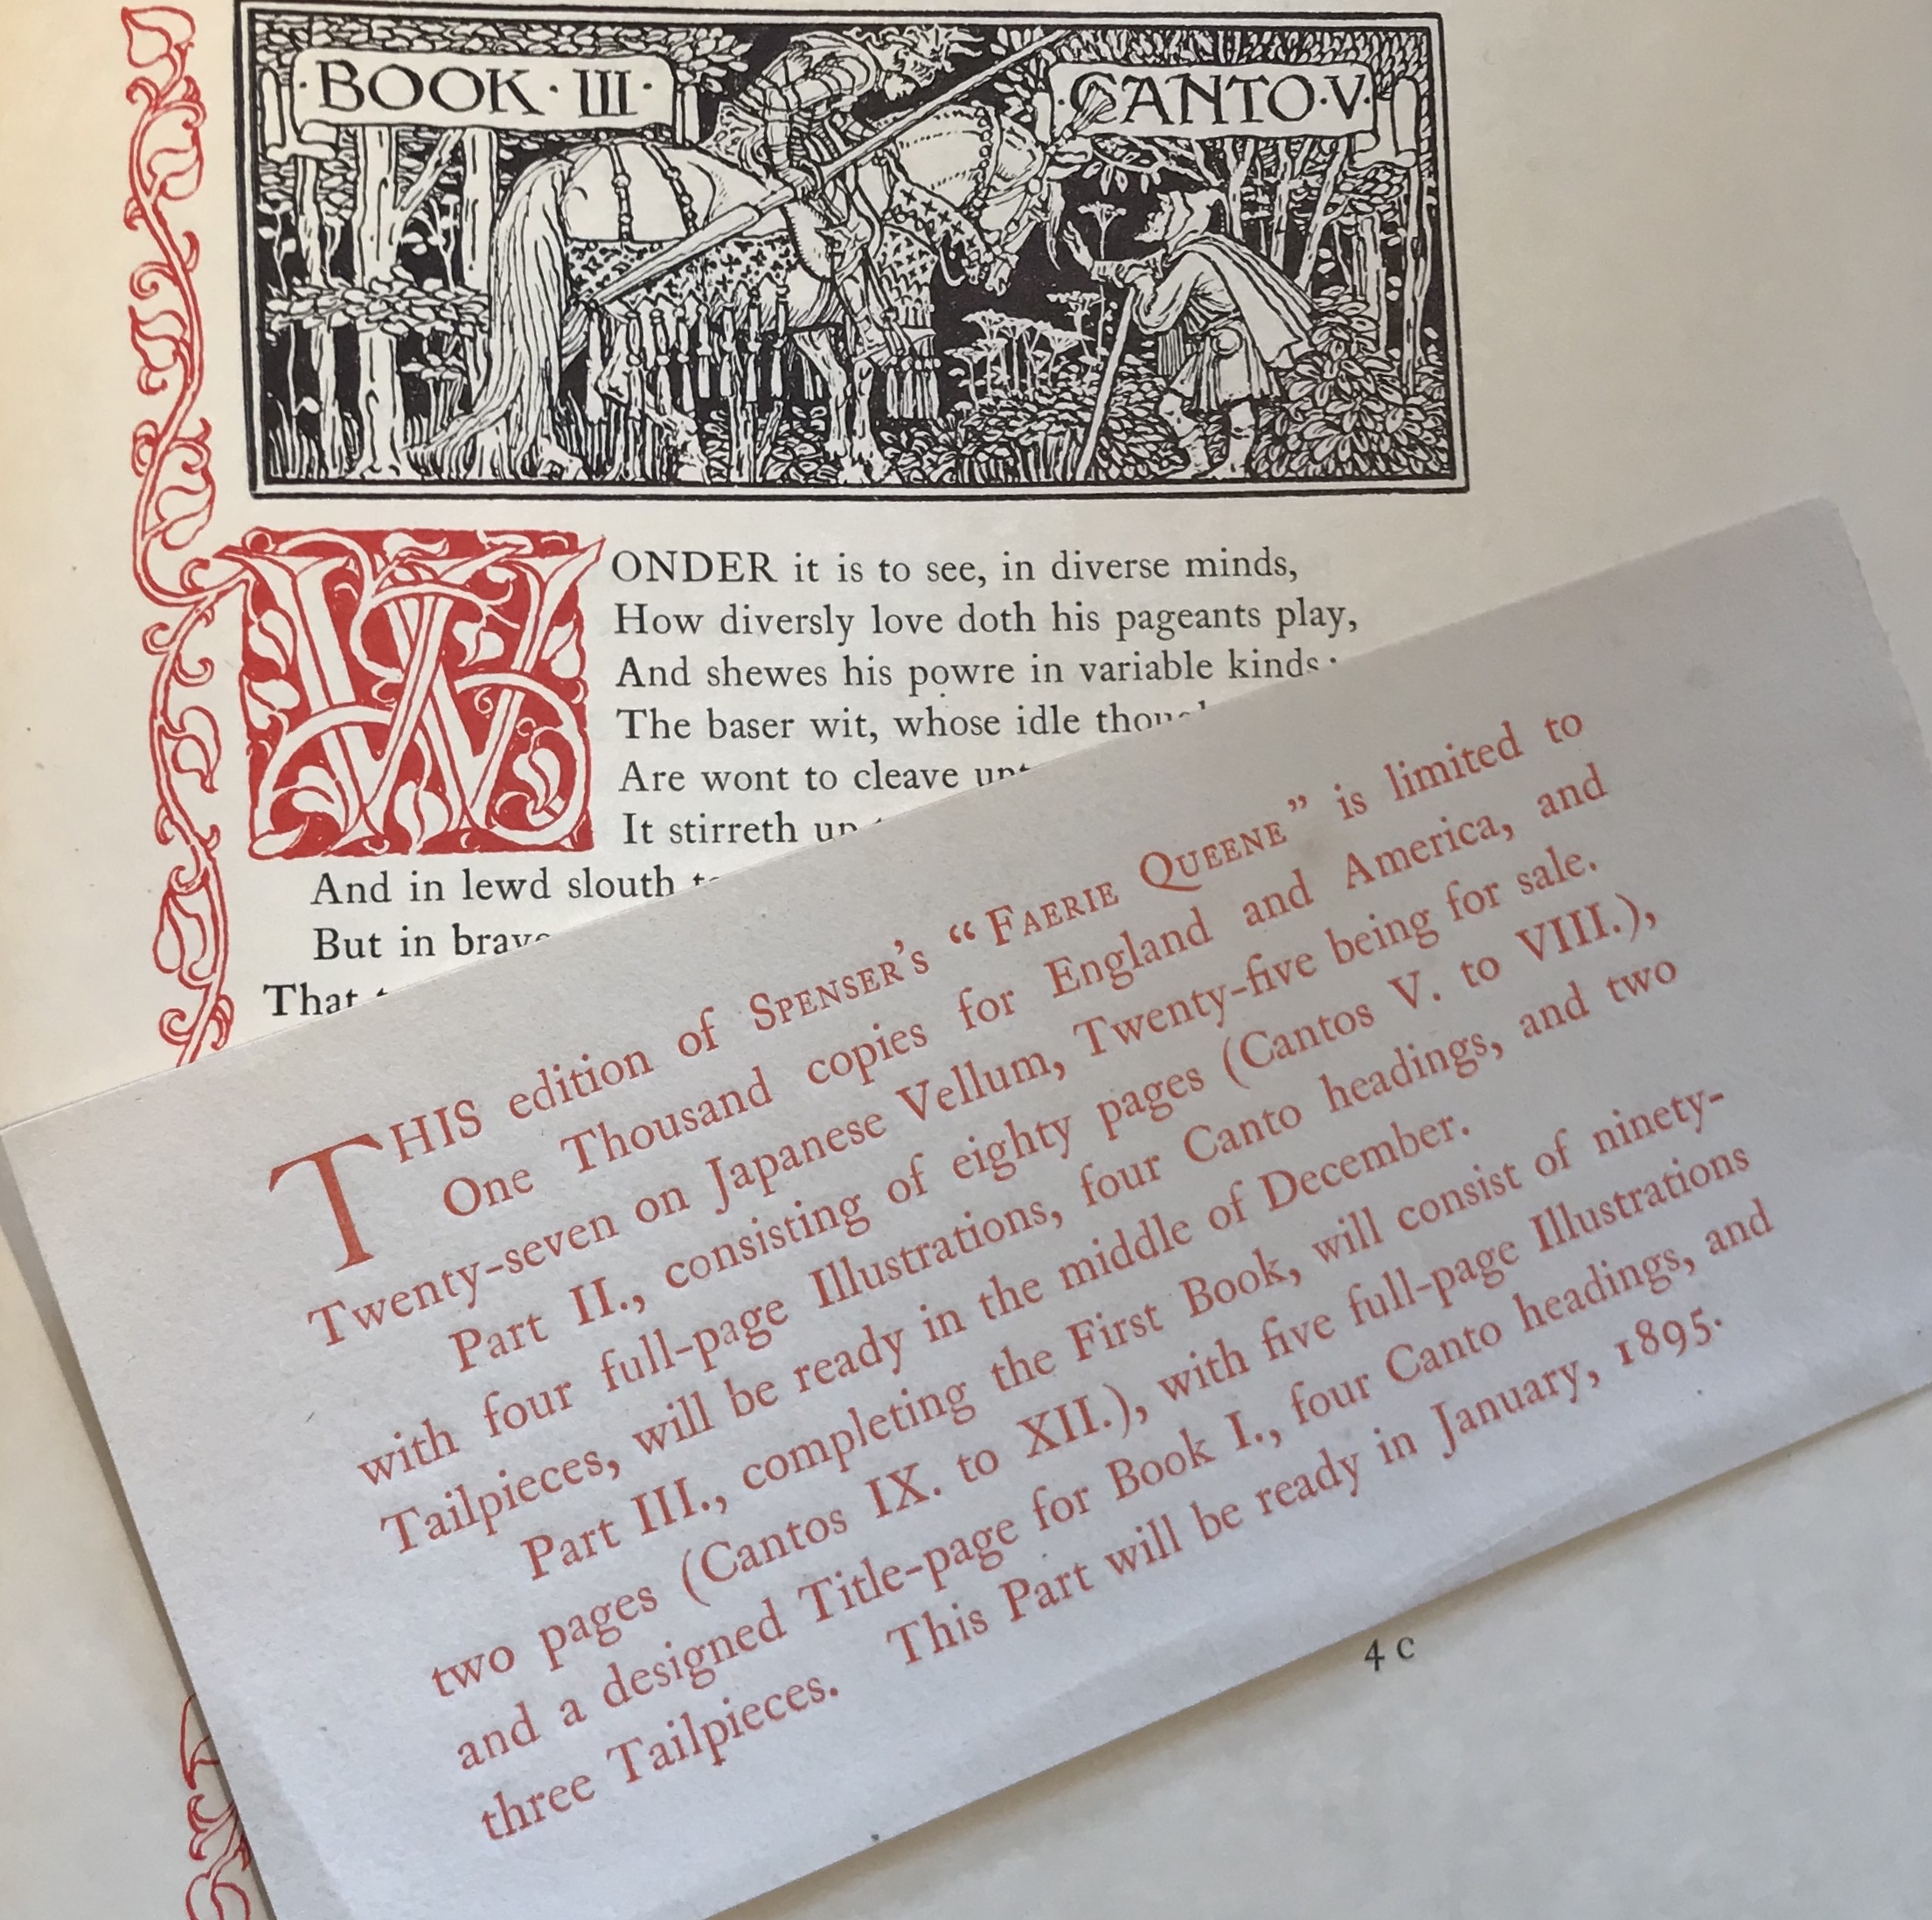 ·BOOK·III·
·CANTO·V·
WONDER it is to see, in diverse minds,
How diversly love doth his pageants play,
And shewes his powre in variable kinds:
The baser wit, whose idle
Are wont to cleave
It stirreth up
And in lewd slouth
But in brave
That
THIS edition of SPENSER'S “FAERIE QUEENE” is limited to
One Thousand copies for England and America, and
Twenty-seven on Japanese Vellum, Twenty-five being for sale.
Part II., consisting of eighty pages (Cantos V. to VIII.),
with four full-page Illustrations, four Canto headings, and two
Tailpieces, will be ready in the middle of December.
Part III., completing the First Book, will consist of ninety-
two pages (Cantos IX. to XII.), with five full-page Illustrations
and a designed Title-page for Book I., four Canto headings, and
three Tailpieces. This Part will be ready in January, 1895.
4 C